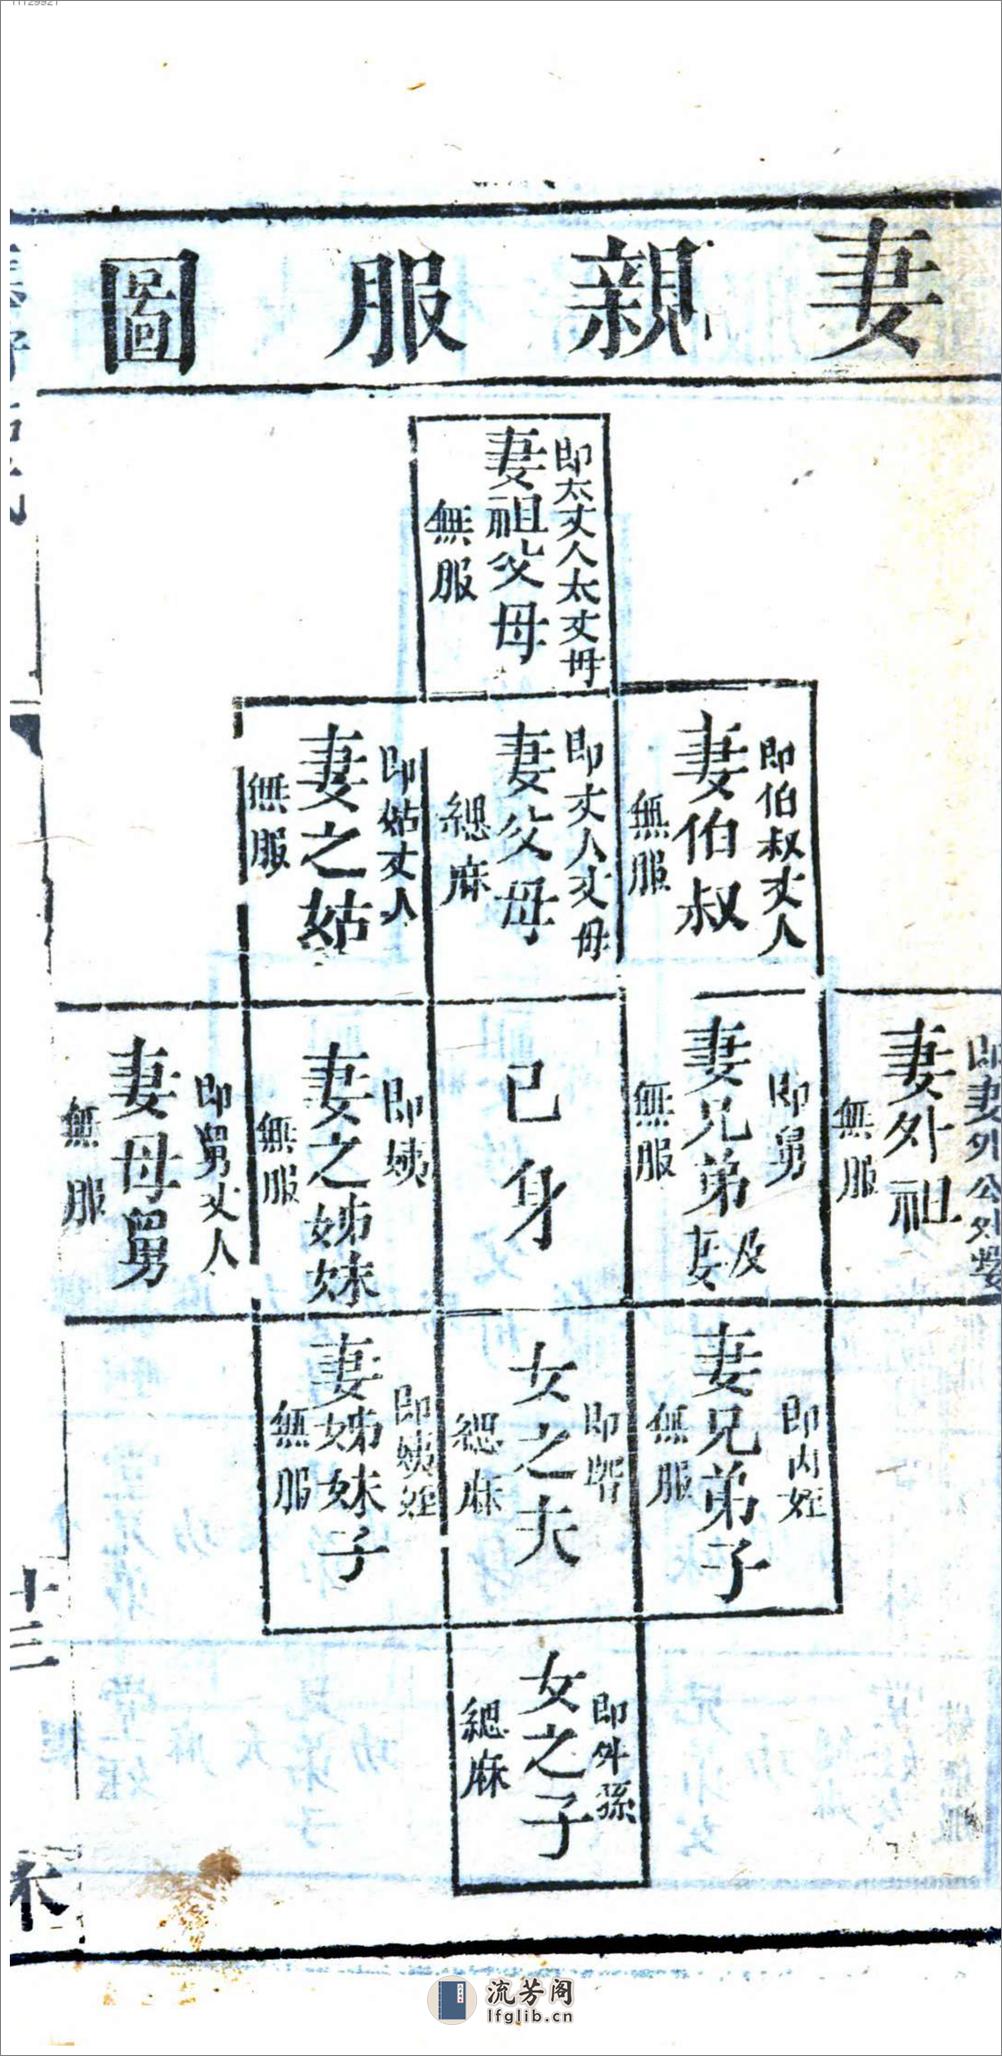 妻親服圖
即太丈人太丈母
妻祖父母
無服
即伯叔丈人
妻伯叔
無服
即丈人丈母
妻父母
緦麻
即姑丈人
妻之姑
無服
即妻外公外婆
妻外祖
無服
即舅
妻兄弟及妻
無服
己身
即姨
妻之姊妹
無服
即舅丈人
妻母舅
無服
即內姪
妻兄弟子
無服
即壻
女之夫
緦麻
即姨姪
妻姊妹子
無服
即外孫
女之子
緦麻
十三
流芳阁
lfglib.cn